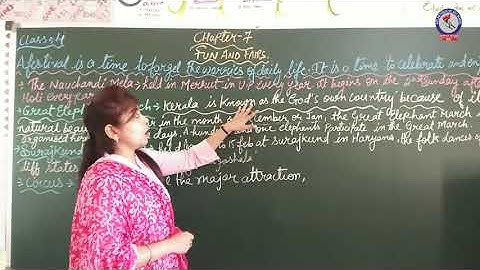 Class-4
Chapter-7
FUN AND FAIRS
A festival is a time to forget the worries of daily life. It is a time to celebrate and en
The Nauchandi Mela → held in Merrut in UP every year it begins on the 2nd Sunday after
Holi every year
Great Elep ch → Kerala is known as the God's own country because of it
natural beau er in the month of December or Jan, the Great elephant March
Organised for days. A hund one elephants participate in the Great March.
Surajkund to 15 feb at surajkund in Haryana, the folk dances of
diff states
Circus → e the major attraction,